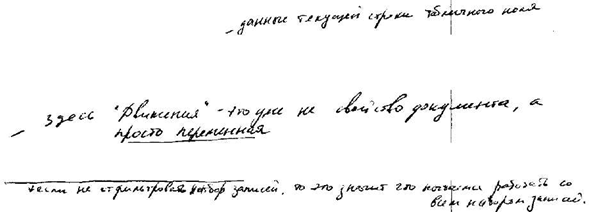 - данные текущей строки табличного поля
- здесь "Движения" - это уже не свойство документа, а
просто переменная
если не отфильтровав набор записей, то это значит что начнем работать со
всем набором записей.